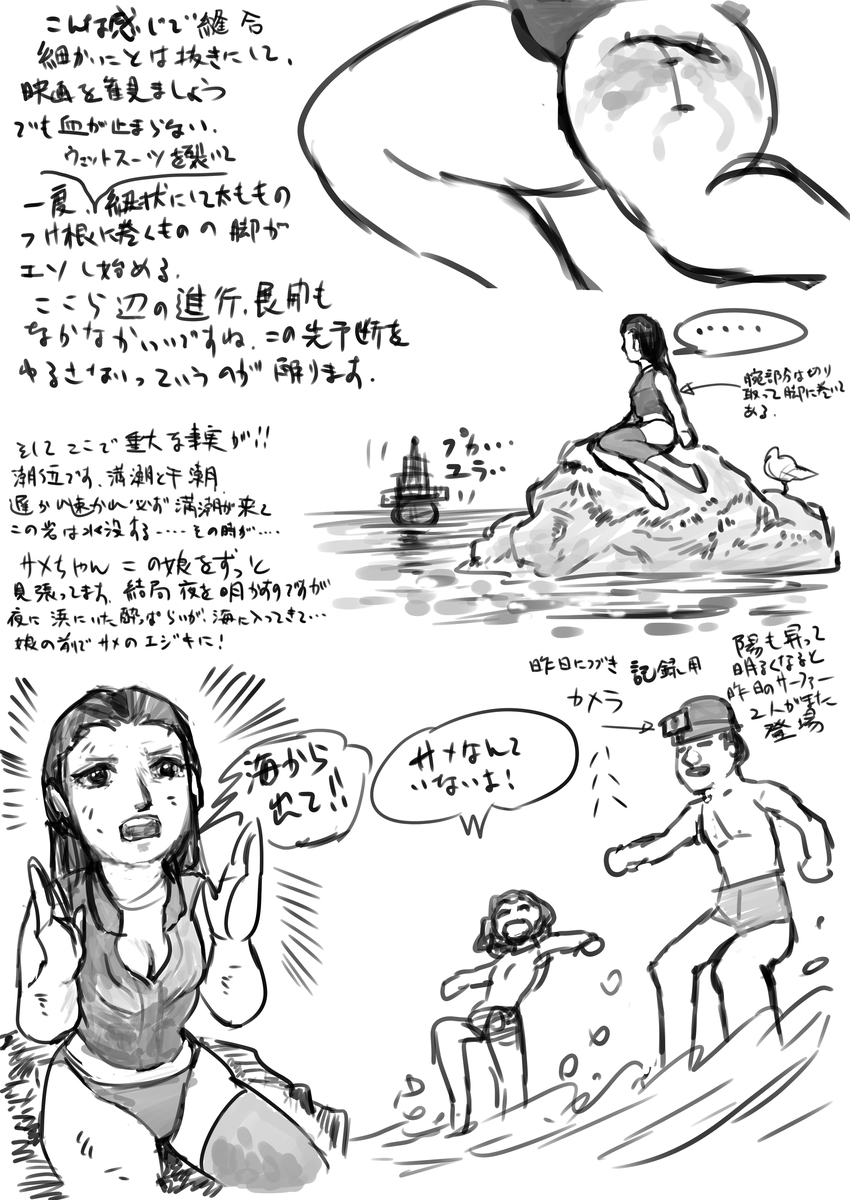 こんな感じで縫合
細かいことは抜きにして、
映画を観ましょう
でも血が止まらない。
ウェットスーツを裂いて
一度、紐状にして太ももの
つけ根に巻くものの脚が
エソし始める。
ここら辺の進行、展開も
なかなかいいですね、この先予断を
ゆるさないっていうのが踊ります。
‥‥‥
腕部分は切り
取って脚に巻いて
ある。
プカ…
ユラ…
そしてここで重大な事実が!!
潮位です、満潮と干潮、
遅かれ速かれ必ず満潮が来て
この岩は水没する‥‥その時が‥‥
サメちゃんこの娘をずっと
見張ってます、結局夜を明かすのですが
夜に浜にいた酔っぱらいが、海に入ってきて…
娘の前でサメのエジキに!
陽も昇って
明るくなると
昨日のサーファー
2人がまた
登場
昨日につづき 記録用
カメラ
海から
出て!!
サメなんて
いないよ!